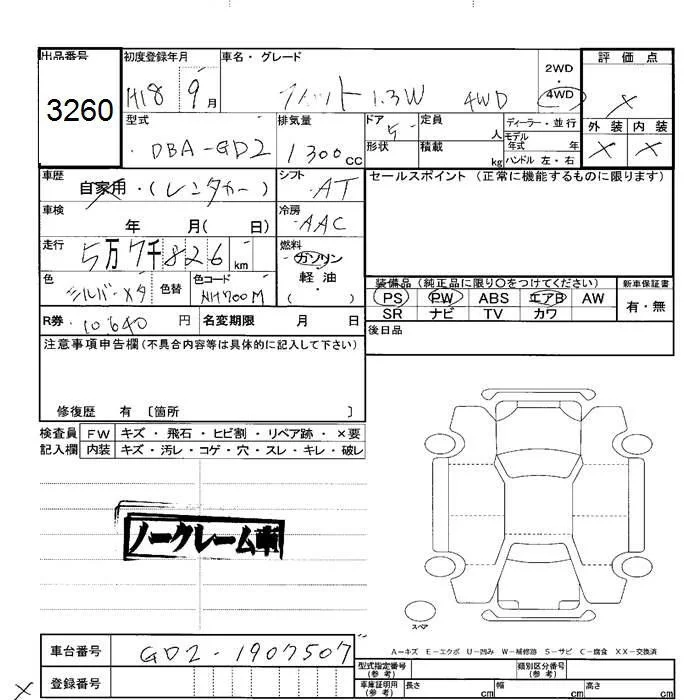 出品番号
3260
初度登録年月
H18 9月
車名・グレード
フィット 1.3W 4WD
2WD
・
4WD
評価点
×
外装 内装
× ×
型式
DBA-GD2
排気量
1300cc
ドア 5
定員 人
ディーラー・並行
モデル
年式 年
形状
積載 kg
ハンドル 左・右
車歴
自家用・(レンタカー)
シフト
AT
セールスポイント (正常に機能するものに限ります)
車検
年 月( 日)
冷房
AAC
走行
5万7千826km
燃料
ガソリン
軽油
( )
色
シルバーメタ
色替
色コード
NH700M
装備品 (純正品に限り○をつけてください)
PS PW ABS エアB AW
SR ナビ TV カワ
新車保証書
有・無
R券 10640円
名変期限 月 日
後日品
注意事項申告欄(不具合内容等は具体的に記入して下さい)
修復歴 有 〔箇所 〕
検査員
記入欄
FW キズ・飛石・ヒビ割・リペア跡・×要
内装 キズ・汚レ・コゲ・穴・スレ・キレ・破レ
ノークレーム車
スペア
A-キズ E-エクボ U-凹み W-補修跡 S-サビ C-腐食 XX-交換済
車台番号 GD2-1907507
登録番号
×
型式指定番号
(参考)
類別区分番号
(参考)
車庫証明用
(参考)
長さ cm 幅 cm 高さ cm